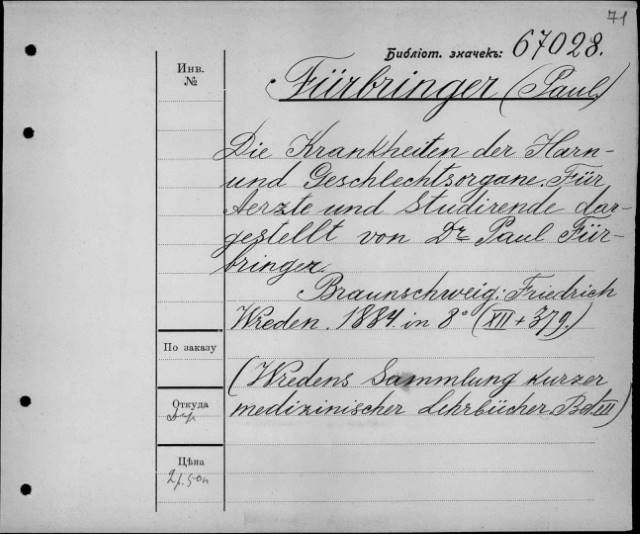 71
Библіот. значекъ: 67028.
Инв.
№
Fürbringer (Paul)
Die Krankheiten der Harn-
und Geschlechtsorgane. Für
Aerzte und Studirende dar-
gestellt von Dr Paul Für-
bringer.
Braunschweig: Friedrich
Wreden. 1884. in 8° (XII + 379.)
По заказу
(Wredens Sammlung kurzer
medizinischer Lehrbücher. Bd
Откуда
Цѣна